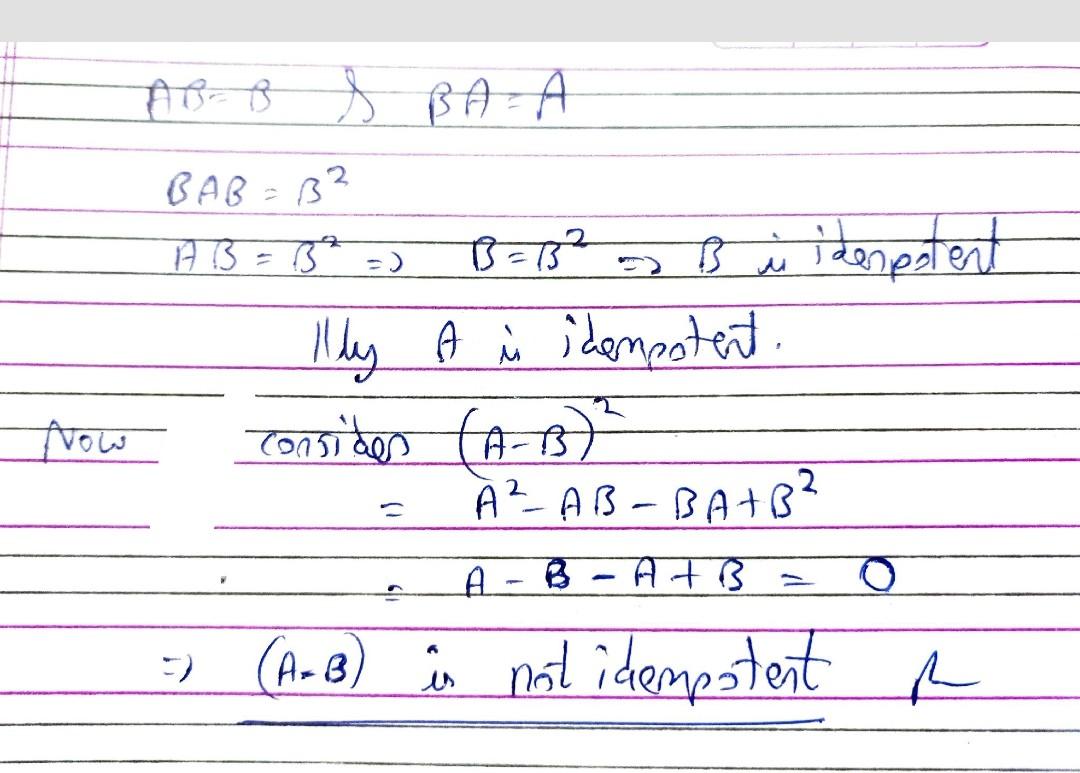 AB = B & BA = A
BAB = B²
AB = B² => B = B² => B is idenpotent
|||ly A is idempotent.
Now consider (A-B)²
= A² - AB - BA + B²
= A - B - A + B = 0
=> (A-B) is not idempotent